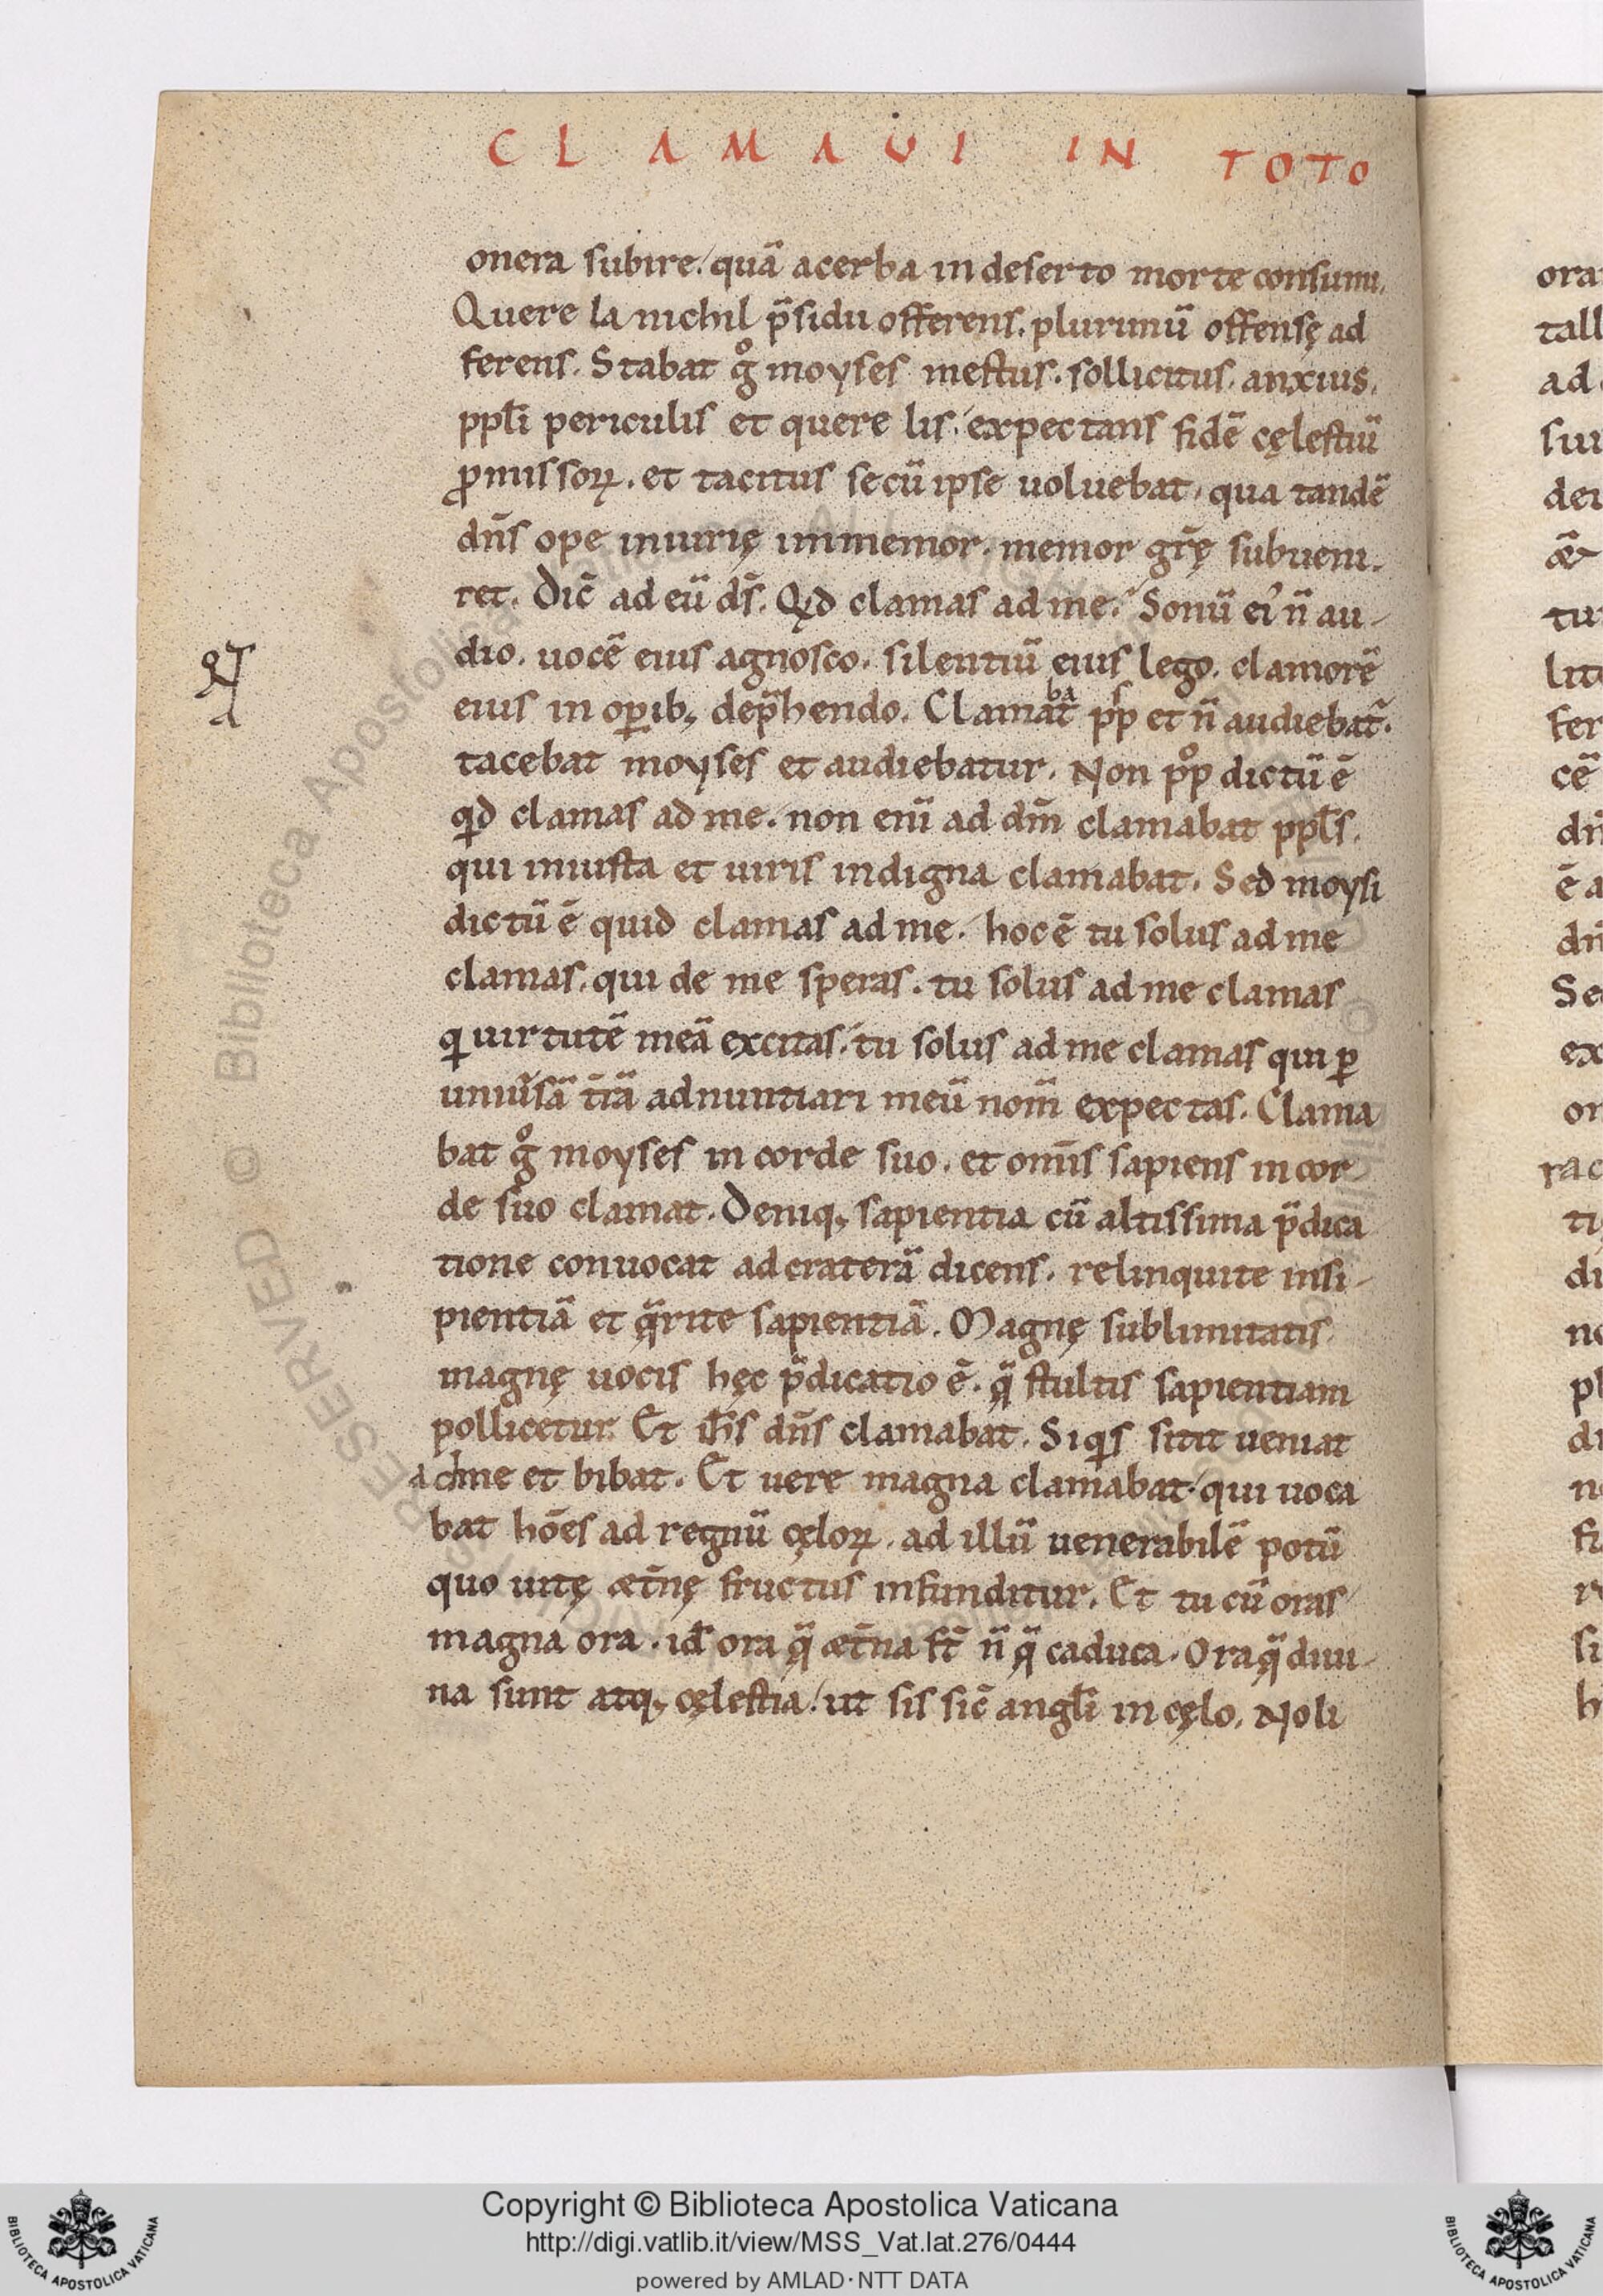 CLAMAUI IN TOTO
onera subire. quā acerba in deserto morte consumi.
Querela nichil p̄sidii offerens. plurimū offensę ad
ferens. Stabat gͦ moyses mestus. sollicitus. anxius.
pp̄li periculis et querelis. expectans fidē cęlestiū
ꝓmissoꝝ. et tacitus secū ipse uoluebat. qua tandē
dn̄s ope iniurię immemor. memor gr̄ę subueni-
ret. Dic̄ ad eū ds̄. Qd clamas ad me. Sonū ei' n̄ au-
dio. uocē eius agnosco. silentiū eius lego. clamorē
eius in oꝑib; dep̄hendo. Clamabat pp̄s et n̄ audiebat᷑.
tacebat moyses et audiebatur. Non pͦp dictū ē
qd clamas ad me. non eni ad dm̄ clamabat pp̄ls.
qui iniusta et uiris indigna clamabat. Sed moysi
dictū ē quid clamas ad me. hoc ē tu solus ad me
clamas. qui de me speras. tu solus ad me clamas
q uirtutē meā excitas. tu solus ad me clamas qui ꝑ
uniu̓sā t̄rā adnuntiari meū nom̄ expectas. Clama
bat gͦ moyses in corde suo. et omīs sapiens in cor-
de suo clamat. Deniq; sapientia cū altissima p̄dica
tione conuocat ad craterā dicens. relinquite insi-
pientiā et q̄rite sapientiā. Magnę sublimitatis
magnę uocis hęc p̄dicatio ē. q̄ stultis sapientiam
pollicetur. Et ih̄s dn̄s clamabat. Siqs sitit ueniat
ad me et bibat. Et uere magna clamabat. qui uoca
bat hōēs ad regnū cęloꝝ. ad illū uenerabilē potū
quo uitę æt̄nę fructus infunditur. Et tu cū oras
magna ora. id ora q̄ æt̄na st̄ n̄ q̄ caduca. Ora q̄ diui-
na sunt atq; cęlestia. ut sis sic̄ angl̄i in cęlo. Noli
ora
tall
ad
dei
tu
lit
fer
cē
dn̄
ē a
dn̄
Se
ex
or
rac
ti
di
no
pl
di
n
fi
r
si
h
Copyright © Biblioteca Apostolica Vaticana
http://digi.vatlib.it/view/MSS_Vat.lat.276/0444
powered by AMLAD·NTT DATA
BIBLIOTECA APOSTOLICA VATICANA
BIBLIOTECA APOSTOLICA VATICANA